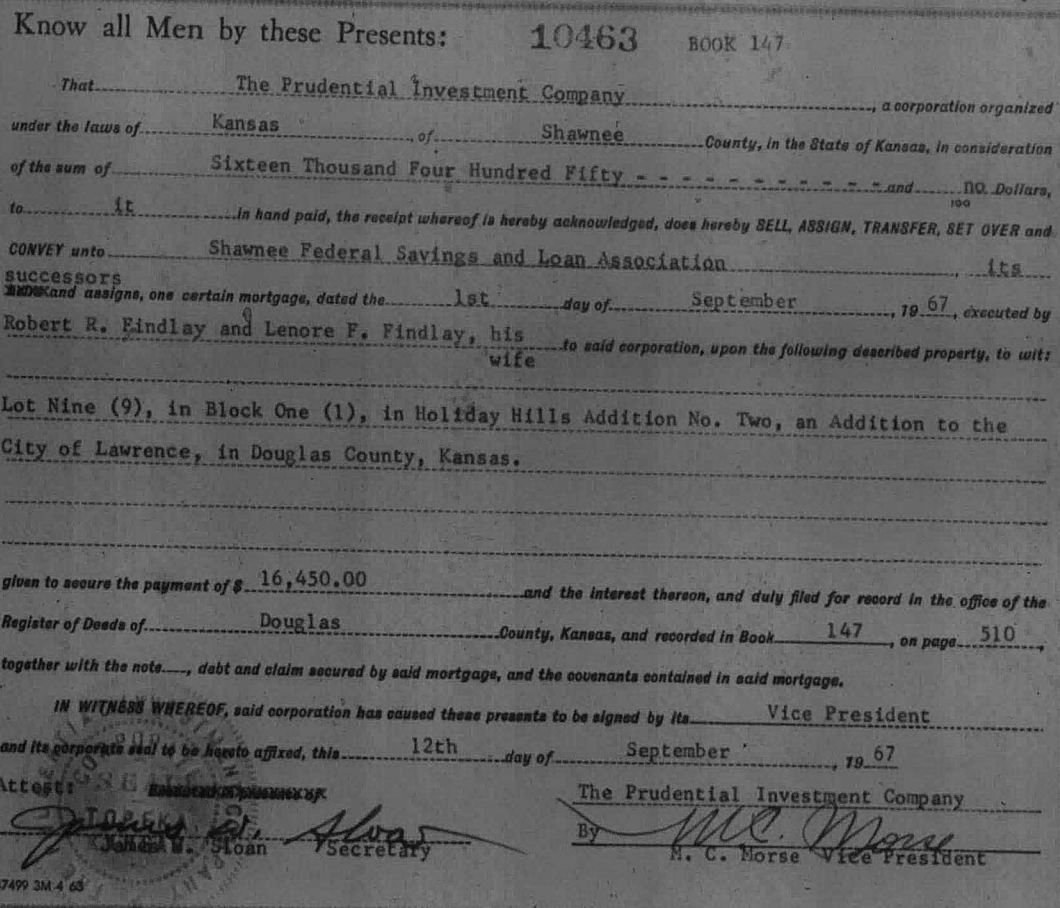 Know all Men by these Presents: 10463 BOOK 147
That The Prudential Investment Company, a corporation organized
under the laws of Kansas, of Shawnee County, in the State of Kansas, in consideration
of the sum of Sixteen Thousand Four Hundred Fifty - - - - - - - - - - and no Dollars,
100
to it in hand paid, the receipt whereof is hereby acknowledged, does hereby SELL, ASSIGN, TRANSFER, SET OVER and
CONVEY unto Shawnee Federal Savings and Loan Association, its
successors
and assigns, one certain mortgage, dated the 1st day of September, 1967, executed by
Robert R. Findlay and Lenore F. Findlay, his
wife to said corporation, upon the following described property, to wit:
Lot Nine (9), in Block One (1), in Holiday Hills Addition No. Two, an Addition to the
City of Lawrence, in Douglas County, Kansas.
given to secure the payment of $ 16,450.00 and the interest thereon, and duly filed for record in the office of the
Register of Deeds of Douglas County, Kansas, and recorded in Book 147, on page 510,
together with the note, debt and claim secured by said mortgage, and the covenants contained in said mortgage.
IN WITNESS WHEREOF, said corporation has caused these presents to be signed by its Vice President
and its corporate seal to be hereto affixed, this 12th day of September, 1967
Attest: The Prudential Investment Company
By M. C. Morse
James W. Sloan Secretary M. C. Morse Vice President
SEAL
TOPEKA
7499 3M 4 63